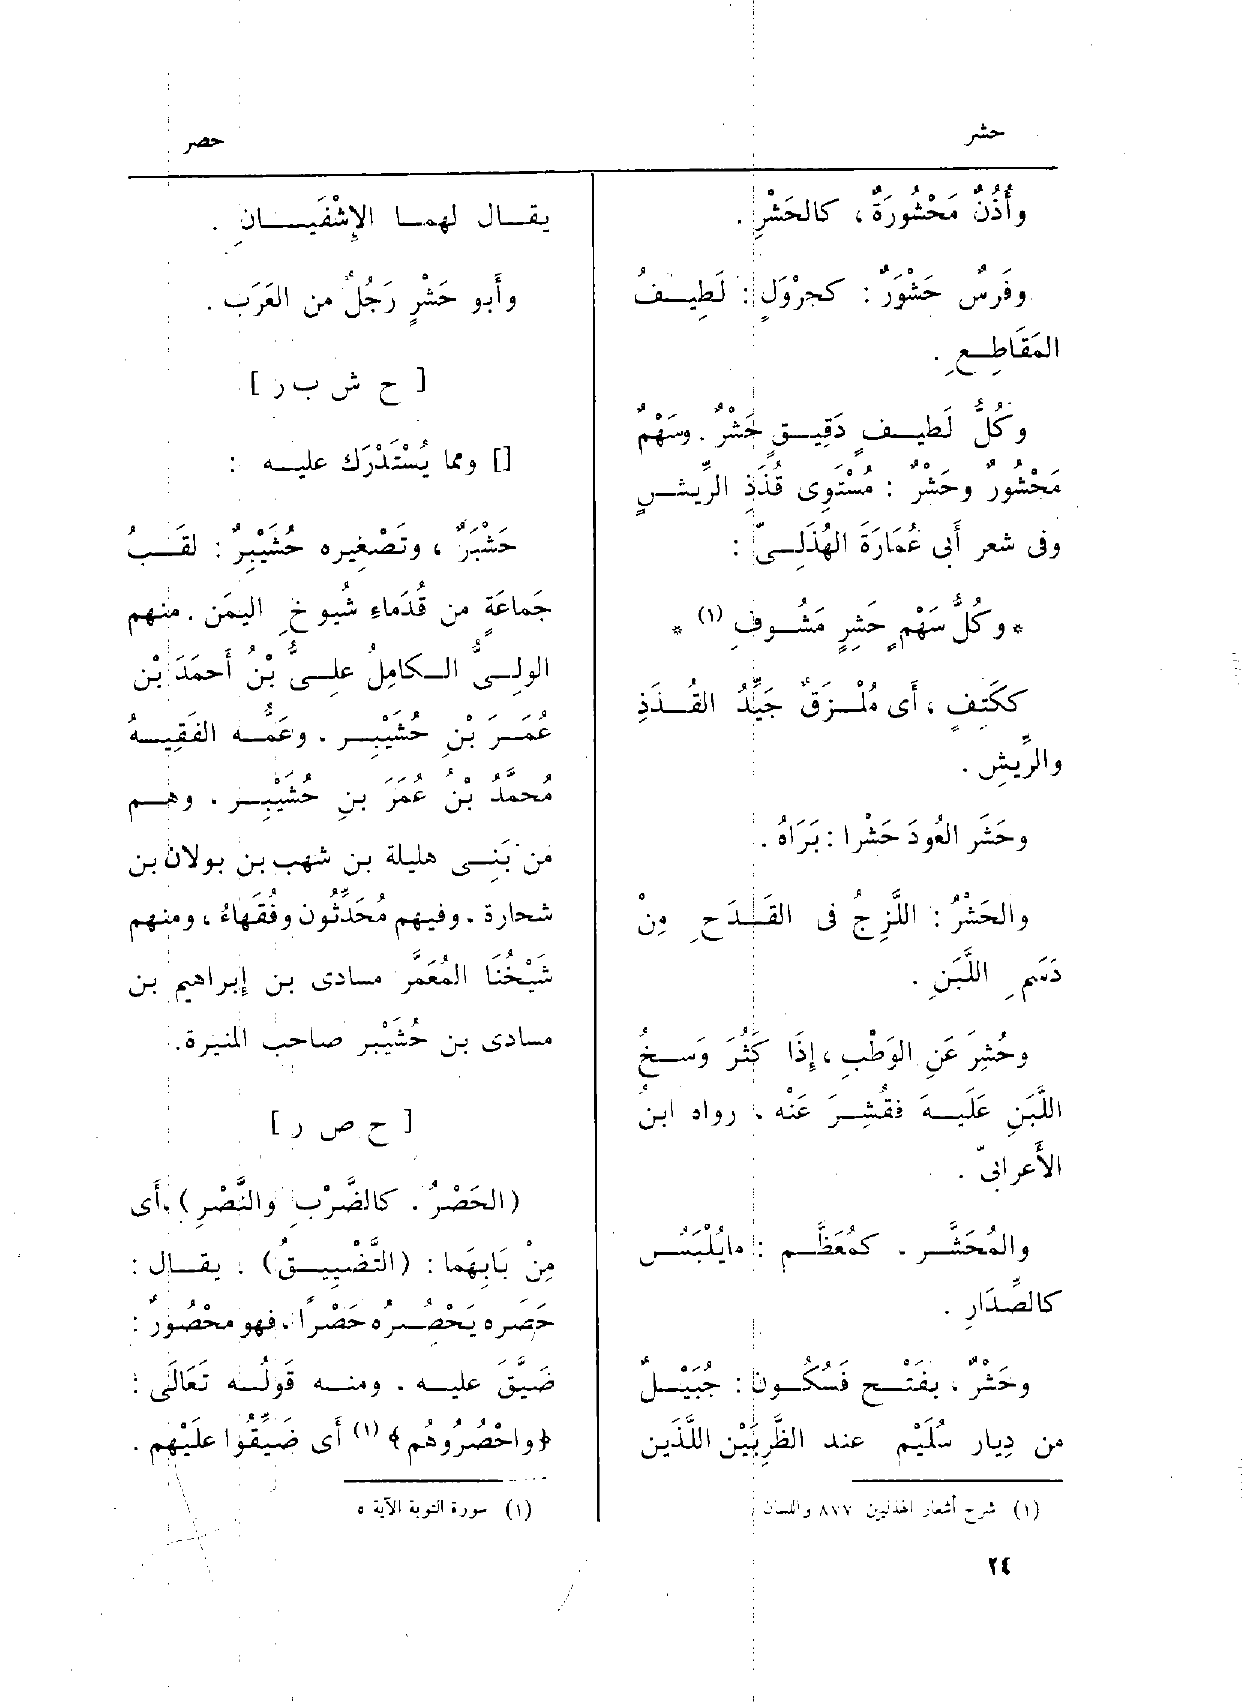 حشر
حصر
وأُذُنٌ مَحْشُورَةٌ ، كالحَشْرِ .
وفَرَسٌ حَشْوَرٌ : كجرْوَلٍ : لَطِيفُ
المَقَاطِعِ .
وكُلُّ لَطِيفٍ دَقِيقٍ حَشْرٌ . وسَهْمٌ
مَحْشُور وحَشْرٌ : مُسْتَوِى قُذَذِ الرِّيش
وفى شعر أَبى عُمَارَةَ الهُذَلِىّ :
* وكُلُّ سَهْمٍ حَشِرٍ مَشُوفِ (١) *
ككَتِفٍ ، أَى مُلْزَقٌ جَيِّدُ القُذَذِ
والرِّيشِ .
وحَشَر العُودَ حَشْرا : بَرَاهُ .
والحَشْرُ : اللَّزِجُ فى القَدَحِ مِنْ
دَسَمِ اللَّبَنِ .
وحُشِرَ عَنِ الوَطْبِ ، إِذَا كَثُرَ وَسَخُ
اللَّبَنِ عَلَيهِ فقُشِرَ عَنْه ، رواه ابنُ
الأَعرابىّ .
والمُحَشَّر ، كمُعَظَّم : مايُلْبَسُ
كالصِّدَارِ .
وحَشْرٌ ، بفتْحٍ فَسُكُون : جُبَيْلٌ
من دِيار سُلَيْم عند الظَّرِبَيْن اللَّذَين
(١) شرح أشعار الهذليين ٨٧٧ واللسان
٢٤
يقال لهما الإِشْفَيانِ .
وأَبو حَشْرٍ رَجُلٌ من العَرَب .
[ ح ش ب ر ]
[] ومما يُسْتَدْرَك عليه :
حَشْبَرٌ ، وتَصْغِيره حُشَيْبِرٌ : لقَبُ
جَماعَةٍ من قُدَماءِ شُيوخِ اليمَن . منهم
الولِىُّ الكامِلُ علِىُّ بْنُ أَحمَدَ بْن
عُمَرَ بْنِ حُشَيْبِر . وعَمُّه الفَقِيهُ
مُحمَّدُ بْنُ عُمَرَ بنِ حُشَيْبِر . وهم
من بَنِى هليلة بن شهب بن بولان بن
شحارة . وفيهم مُحَدِّثُون وفُقَهاءُ ، ومنهم
شَيْخُنَا المُعَمَّر مسادى بن إبراهيم بن
مسادى بن حُشَيْبر صاحب المنيرة .
[ ح ص ر ]
(الحَصْرُ . كالضَّرْبِ والنَّصْرِ) ، أَى
مِنْ بَابِهَما : (التَّضْيِيقُ) . يقال :
حَصَره يَحْصِرُه حَصْرًا ، فهو محْصُورٌ :
ضَيَّقَ عليه . ومنه قولُه تَعَالَى :
﴿واحْصُرُوهُم﴾ (١) أَى ضَيِّقُوا علَيْهِم .
(١) سورة التوبة الآية ٥